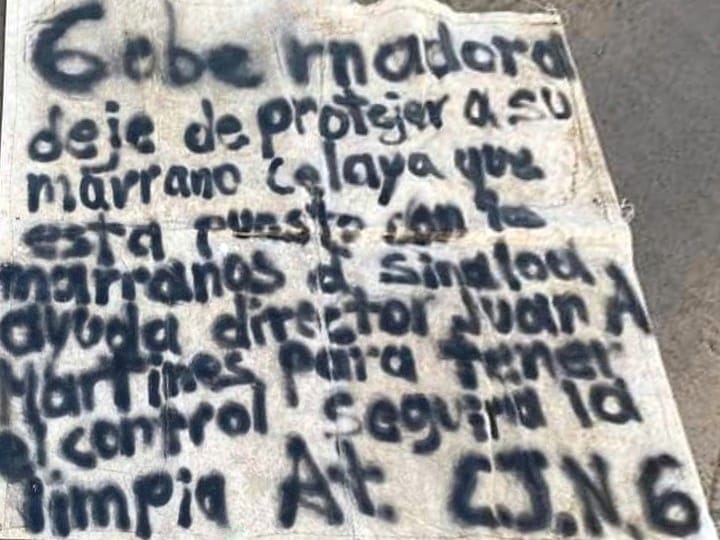 Gobernadora
deje de protejer a su
marrano Celaya que
esta puesto con lo
marranos d sinaloa
ayuda director Juan A
Martines para tener
el control seguira la
limpia At. C.J.N.G